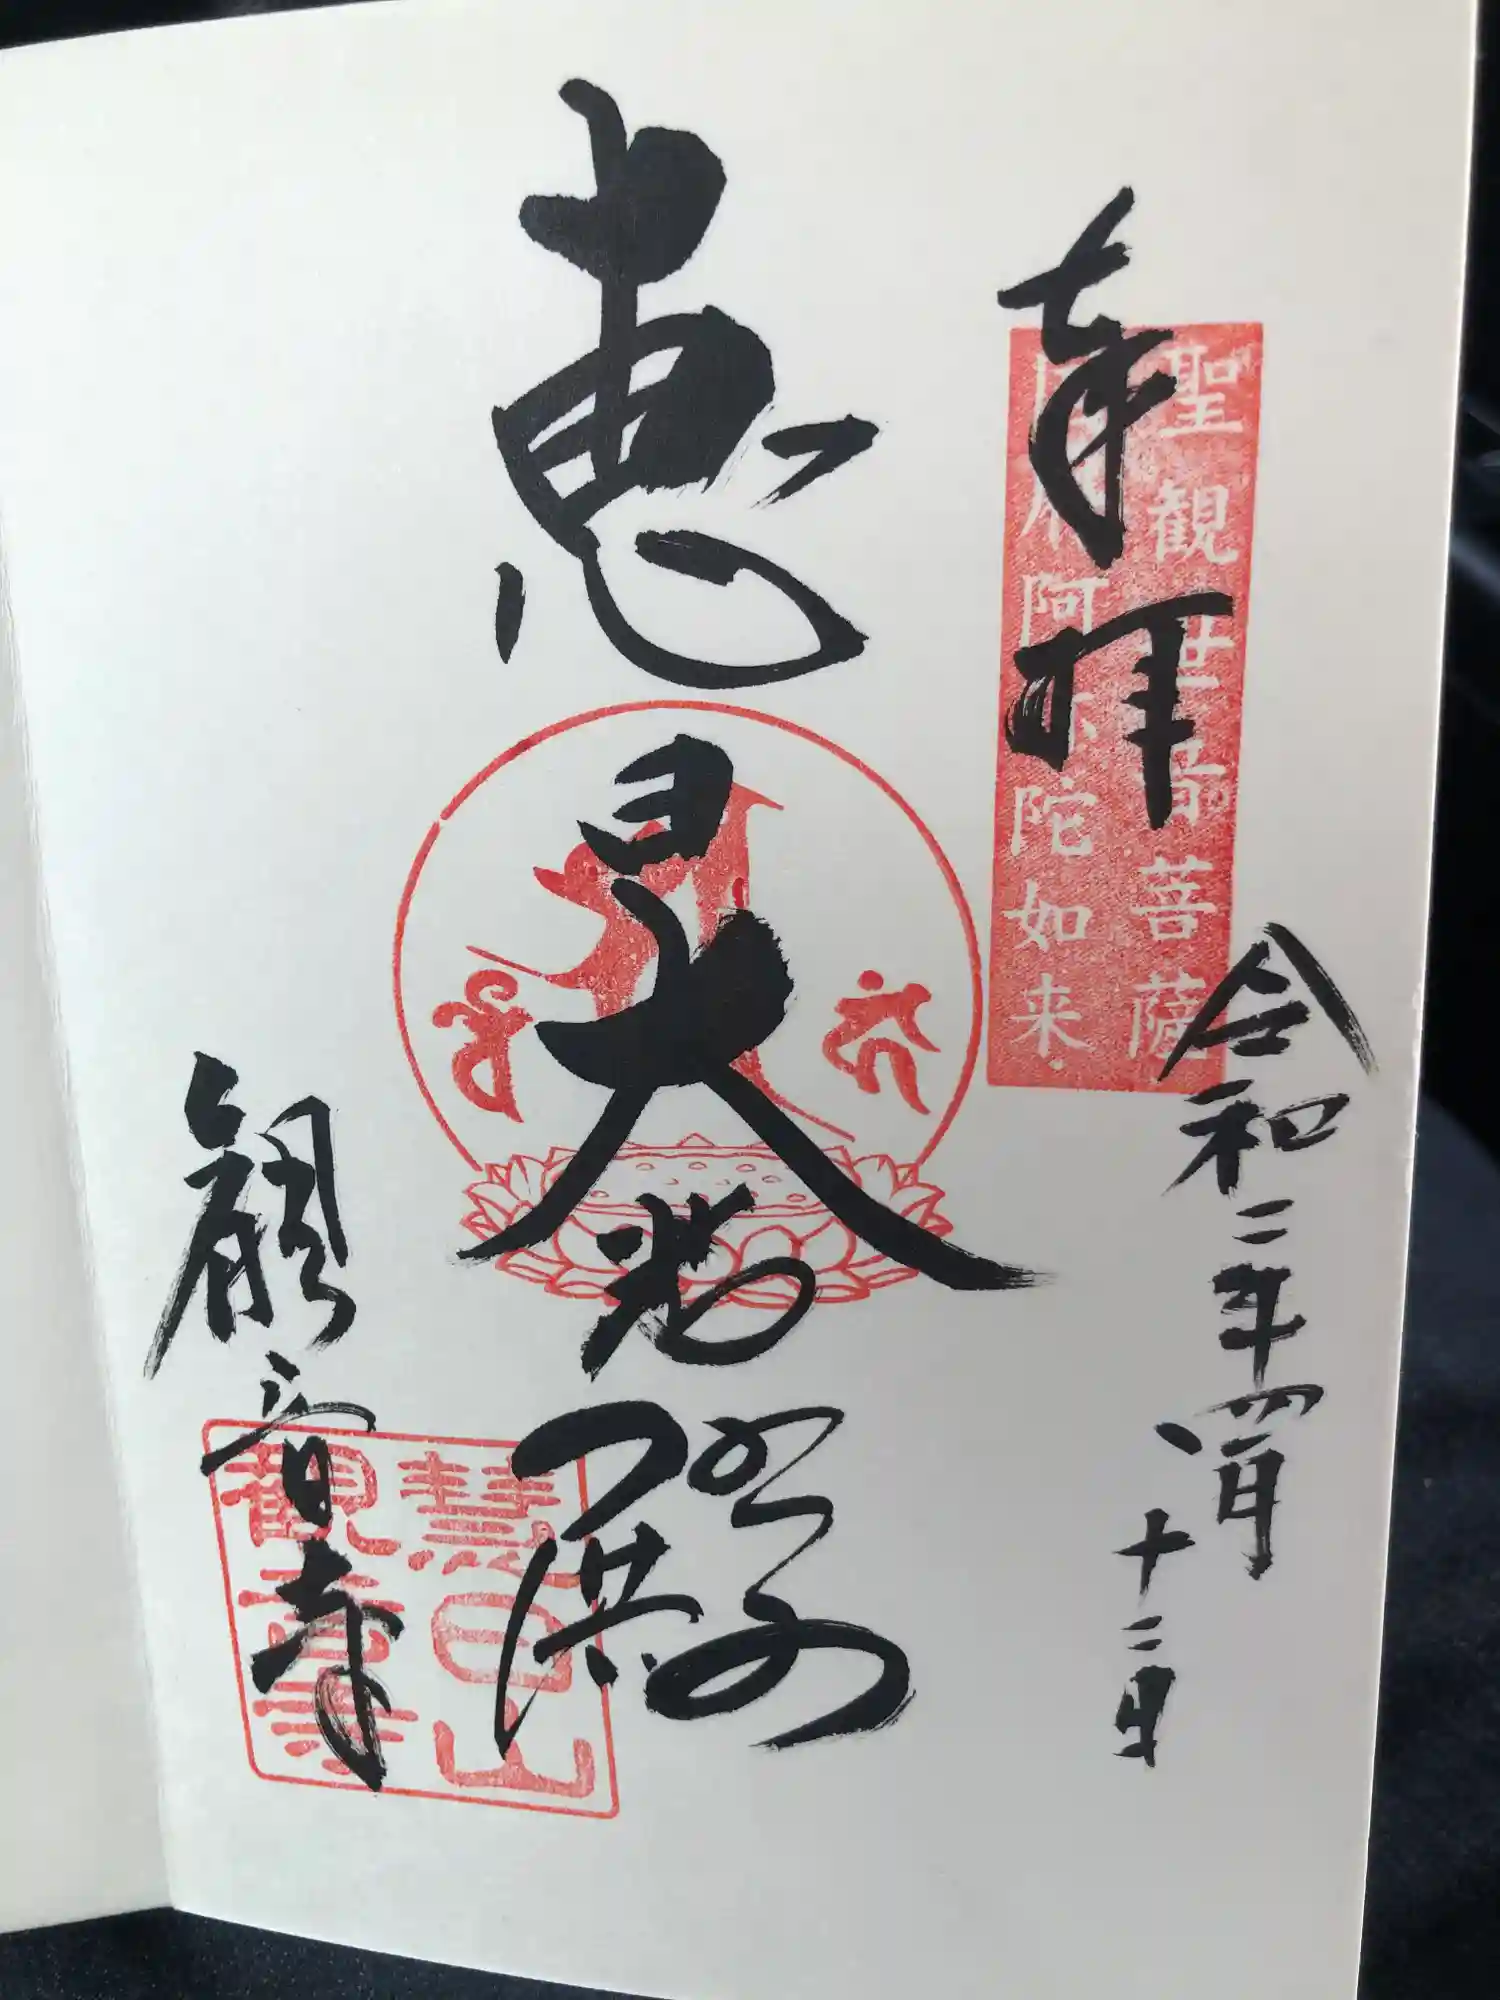 奉拝
聖観世音菩薩
阿弥陀如来
令和二年四月十二日
恵日大
観音寺
慧日山
観音寺